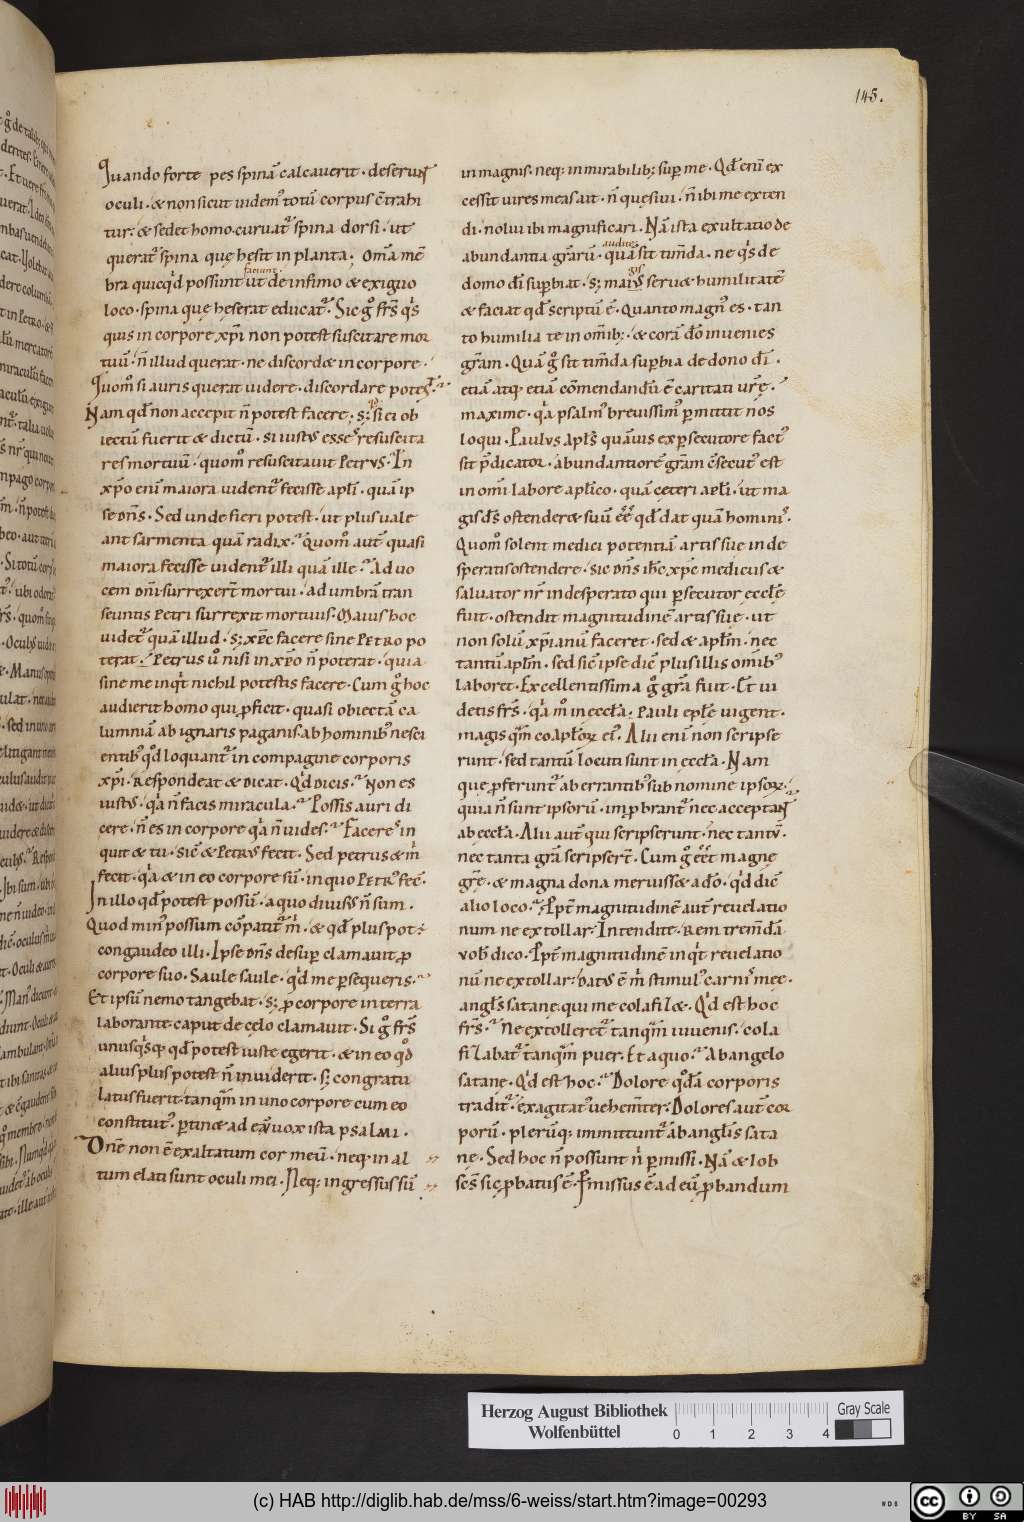 145.
Quando forte pes spinā calcauerit · deserunt
oculi · & non sicut uidem᷒ totū corpus c̄trahi
tur · & sedet homo · curuat᷒ spina dorsi · ut
querat᷒ spina quę hesit in planta · Om̄a mē
faciunt ·
bra quicq̇d possunt ut de infimo & exiguo
loco · spina quę heserat educat᷒ · Sic g̊ fr̄s q̇s
quis in corpore xp̄i non potest suscitare mor
tuū · n̄ illud querat · ne discord& in corpore ·
Quom̊ si auris querat uidere · discordare potest
Nam qd̄ non accepit n̄ potest facere · s; si ei ob
iectū fuerit & dictū · si iustus esses resuscita
res mortuū · quom̊ resuscitauit Petrus · In
xp̄o enī maiora uident᷒ fecisse apl̄i · quā ip
se dn̄s · Sed unde fieri potest · ut plus uale
ant sarmenta quā radix · Quom̊ aut̄ quasi
maiora fecisse uident᷒ illi quā ille · Ad uo
cem dn̄i surrexer̄t mortui · ad umbrā tran
seuntis Petri surrexit mortuus · Maius hoc
uidet᷒ quā illud · s; xp̄c facere sine Petro po
terat · Petrus ů nisi in xp̄o n̄ poterat · quia
sine me inq̇t nichil potestis facere · Cum g̊ hoc
audierit homo qui proficit · quasi obiectā ca
lumniā ab ignaris paganis ab hominib᷒ nesci
entib᷒ q̊d loquant᷒ in compagine corporis
xp̄i · Respondeat & dicat · Q̇d dicis · Non es
iustus · q̇a n̄ facis miracula · Possis auri di
cere · n̄ es in corpore q̇a n̄ uides · Faceres in
quit & tu · sic̄ & Petrus fecit · Sed petrus & m̊
fecit · q̇a & in eo corpore sū · in quo Petr᷒ fec̄ ·
In illo qd̄ potest possū · a quo diuisus n̄ sum ·
Quod min᷒ possum cōpatit᷒ m̊ · & qd̄ plus pot ·
congaudeo illi · Ipse dn̄s desup̄ clamauit p̄
corpore suo · Saule saule · q̇d me p̄sequeris ·
Et ipsū nemo tangebat · s; p̄ corpore in terra
laborante caput de cęlo clamauit · Si g̊ fr̄s
unusq̇sq; qd̄ potest iuste egerit · & in eo q̊d
alius plus potest n̄ inuiderit · s; congratu
latus fuerit · tanquā in uno corpore cum eo
constitut᷒ · p̄tin& ad eū uox ista psalmi ·
Dn̄e non ē exaltatum cor meū · neq; in al
tum elati sunt oculi mei · Neq; ingressus sū
in magnis · neq; in mirabilib; sup̄ me · Qd̄ enī ex
cessit uires meas ait · n̄ quęsiui · n̄ ibi me exten
di · nolui ibi magnificari · Nā ista exultatio de
audite ·
abundantia gr̄arū · quā sit tim̄da · ne q̇s de
gis
domo dī sup̄biat · s; mai᷒ seru& humilitatē
& faciat qd̄ scriptū ē · Quanto magn᷒ es · tan
to humilia te in om̄ib; · & corā dō inuenies
gr̄am · Quā g̊ sit tim̄da sup̄bia de dono dī ·
etiā atq; etiā cōmendandū ē caritati ur̄ę ·
maxime · q̇a psalm᷒ breuissim᷒ p̄mittit nos
loqui · Paulus apl̄s quāuis ex p̄secutore fact᷒
sit p̄dicator · abundantiorē gr̄am c̄secut᷒ est
in om̄i labore apl̄ico · quā ceteri apl̄i · ut ma
gis d̄s ostender& suū eē qd̄ dat quā homini᷒ ·
Quom̊ solent medici potentiā artis suę in de
sp̄eratis ostendere · sic dn̄s ih̄c xp̄c medicus &
saluator nr̄ in desperato qui p̄secutor ecclę̄
fuit · ostendit magnitudinē artis suę · ut
non solū xp̄ianū faceret · sed & apl̄m · nec
tantū apl̄m · sed sic̄ ipse dic̄ plus illis om̄ib᷒
laboret · Excellentissima g̊ gr̄a fuit · Et ui
detis fr̄s · q̇a m̊ in eccl̄a · Pauli epl̄ę uigent ·
magis qm̄ coapl̄oꝝ ei᷒ · Alii enī non scripse
runt · sed tantū locuti sunt in eccl̄a · Nam
quę p̄ferunt᷒ ab errantib᷒ sub nomine ipsoꝝ
quia n̄ sunt ipsorū · improbrant᷒ nec acceptant᷒
ab eccl̄a · Alii aut̄ qui scripserunt · nec tantū ·
nec tanta gr̄a scripser̄t · Cum g̊ eēt magnę
gr̄ę · & magna dona meruiss& a dō · q̊d dic̄
alio loco · Ppt̄ magnitudinē aut̄ reuelatio
num ne extollar · Intendite · Rem trem̄dā
uob̄ dico · Ppt̄ magnitudinē inq̇t reuelatio
nū ne extollar · dat᷒ ē m̊ stimul᷒ carnis męę ·
angl̄s satanę qui me colafiz& · Q̇d est hoc
fr̄s · Ne extolleret᷒ tanqm̄ iuuenis · cola
fizabat᷒ tanqm̄ puer · Et a quo · Ab angelo
satanę · Q̇d est hoc · Dolore q̊dā corporis
tradit᷒ exagitat᷒ uehem̄ter · Dolores aut̄ cor
porū · plerūq; immittunt᷒ ab angl̄is sata
nę · Sed hoc n̄ possunt n̊ p̄missi · Nā & Iob
sc̄s sic p̄batus ē · P̄missus ē ad eū p̄bandum
Herzog August Bibliothek
Wolfenbüttel
0 1 2 3 4
Gray Scale
(c) HAB http://diglib.hab.de/mss/6-weiss/start.htm?image=00293
WDB
CC BY SA